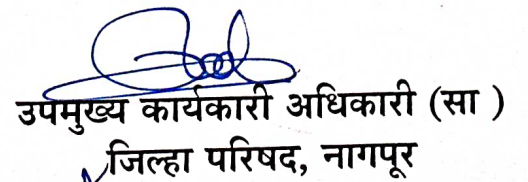 उपमुख्य कार्यकारी अधिकारी (सा )
जिल्हा परिषद, नागपूर